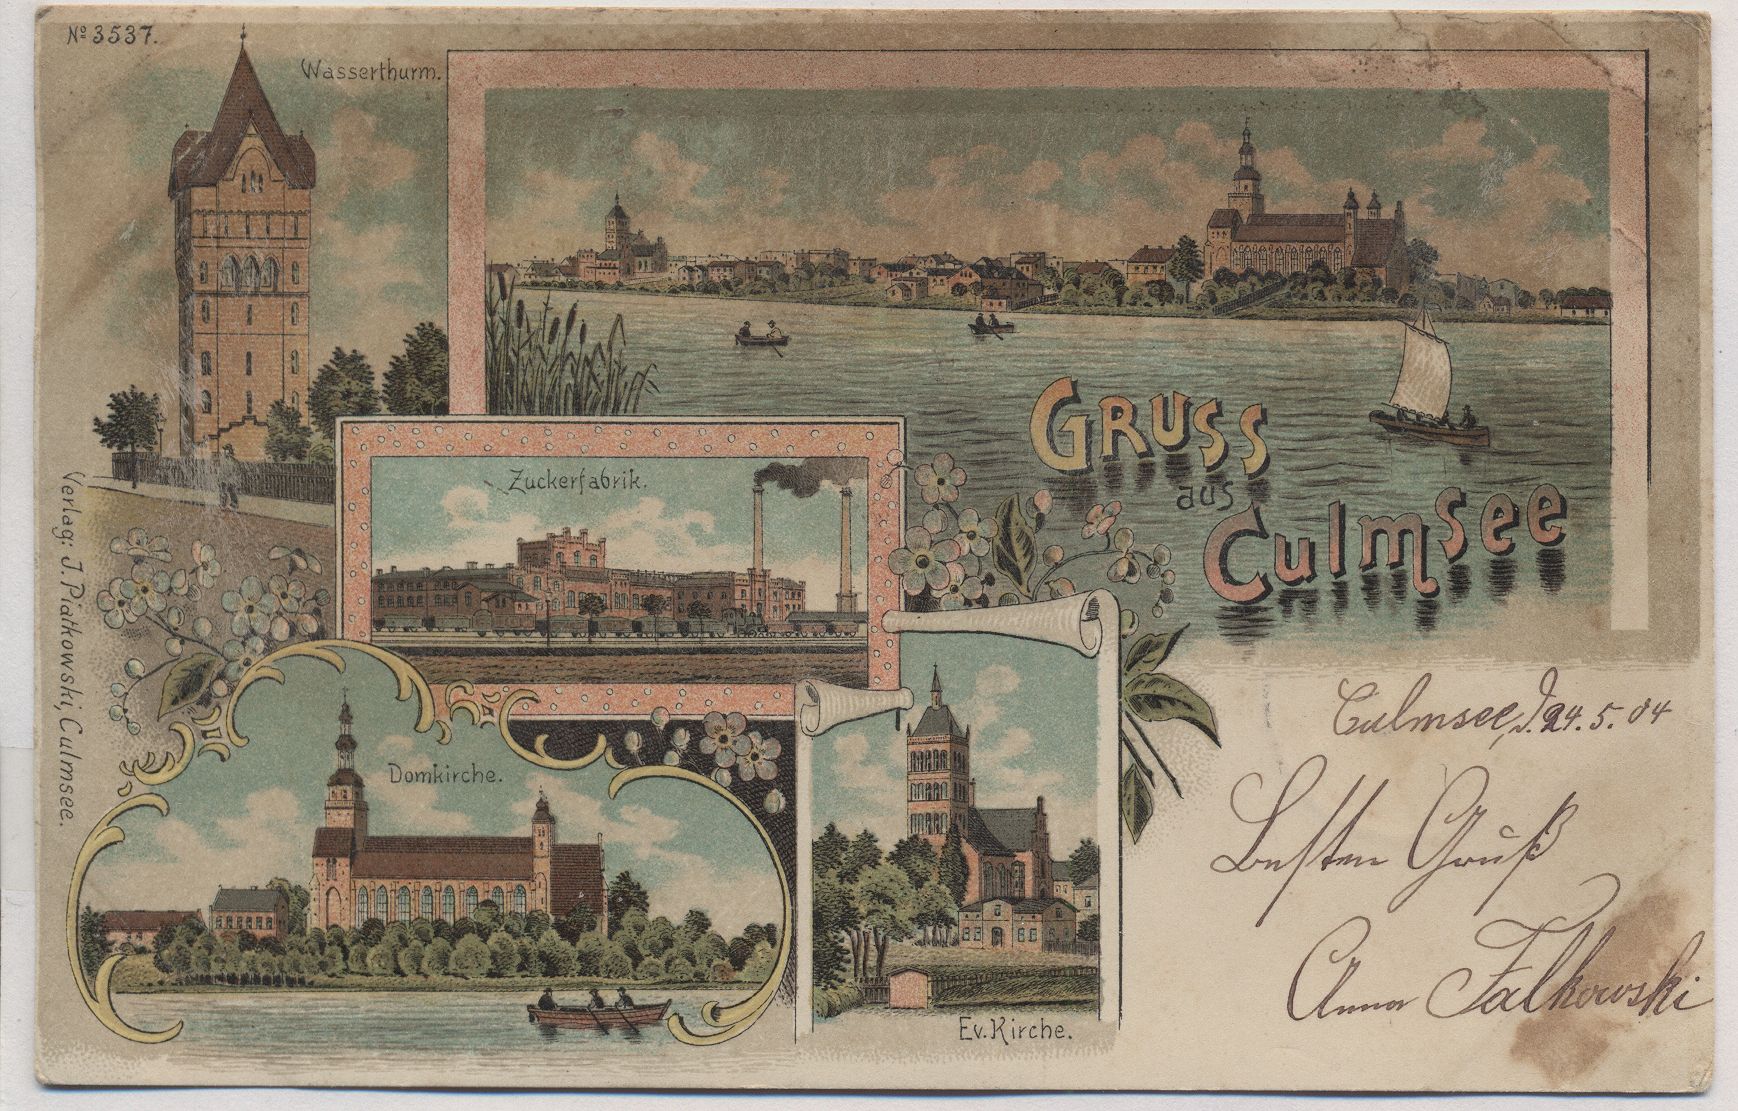 No 3537.
Wasserthurm.
Gruss
aus
Culmsee
Zuckerfabrik.
Verlag: J. Piatkowski, Culmsee.
Domkirche.
Ev. Kirche.
Culmsee, d. 24. 5. 04
Besten Gruß
Anna Falkowski